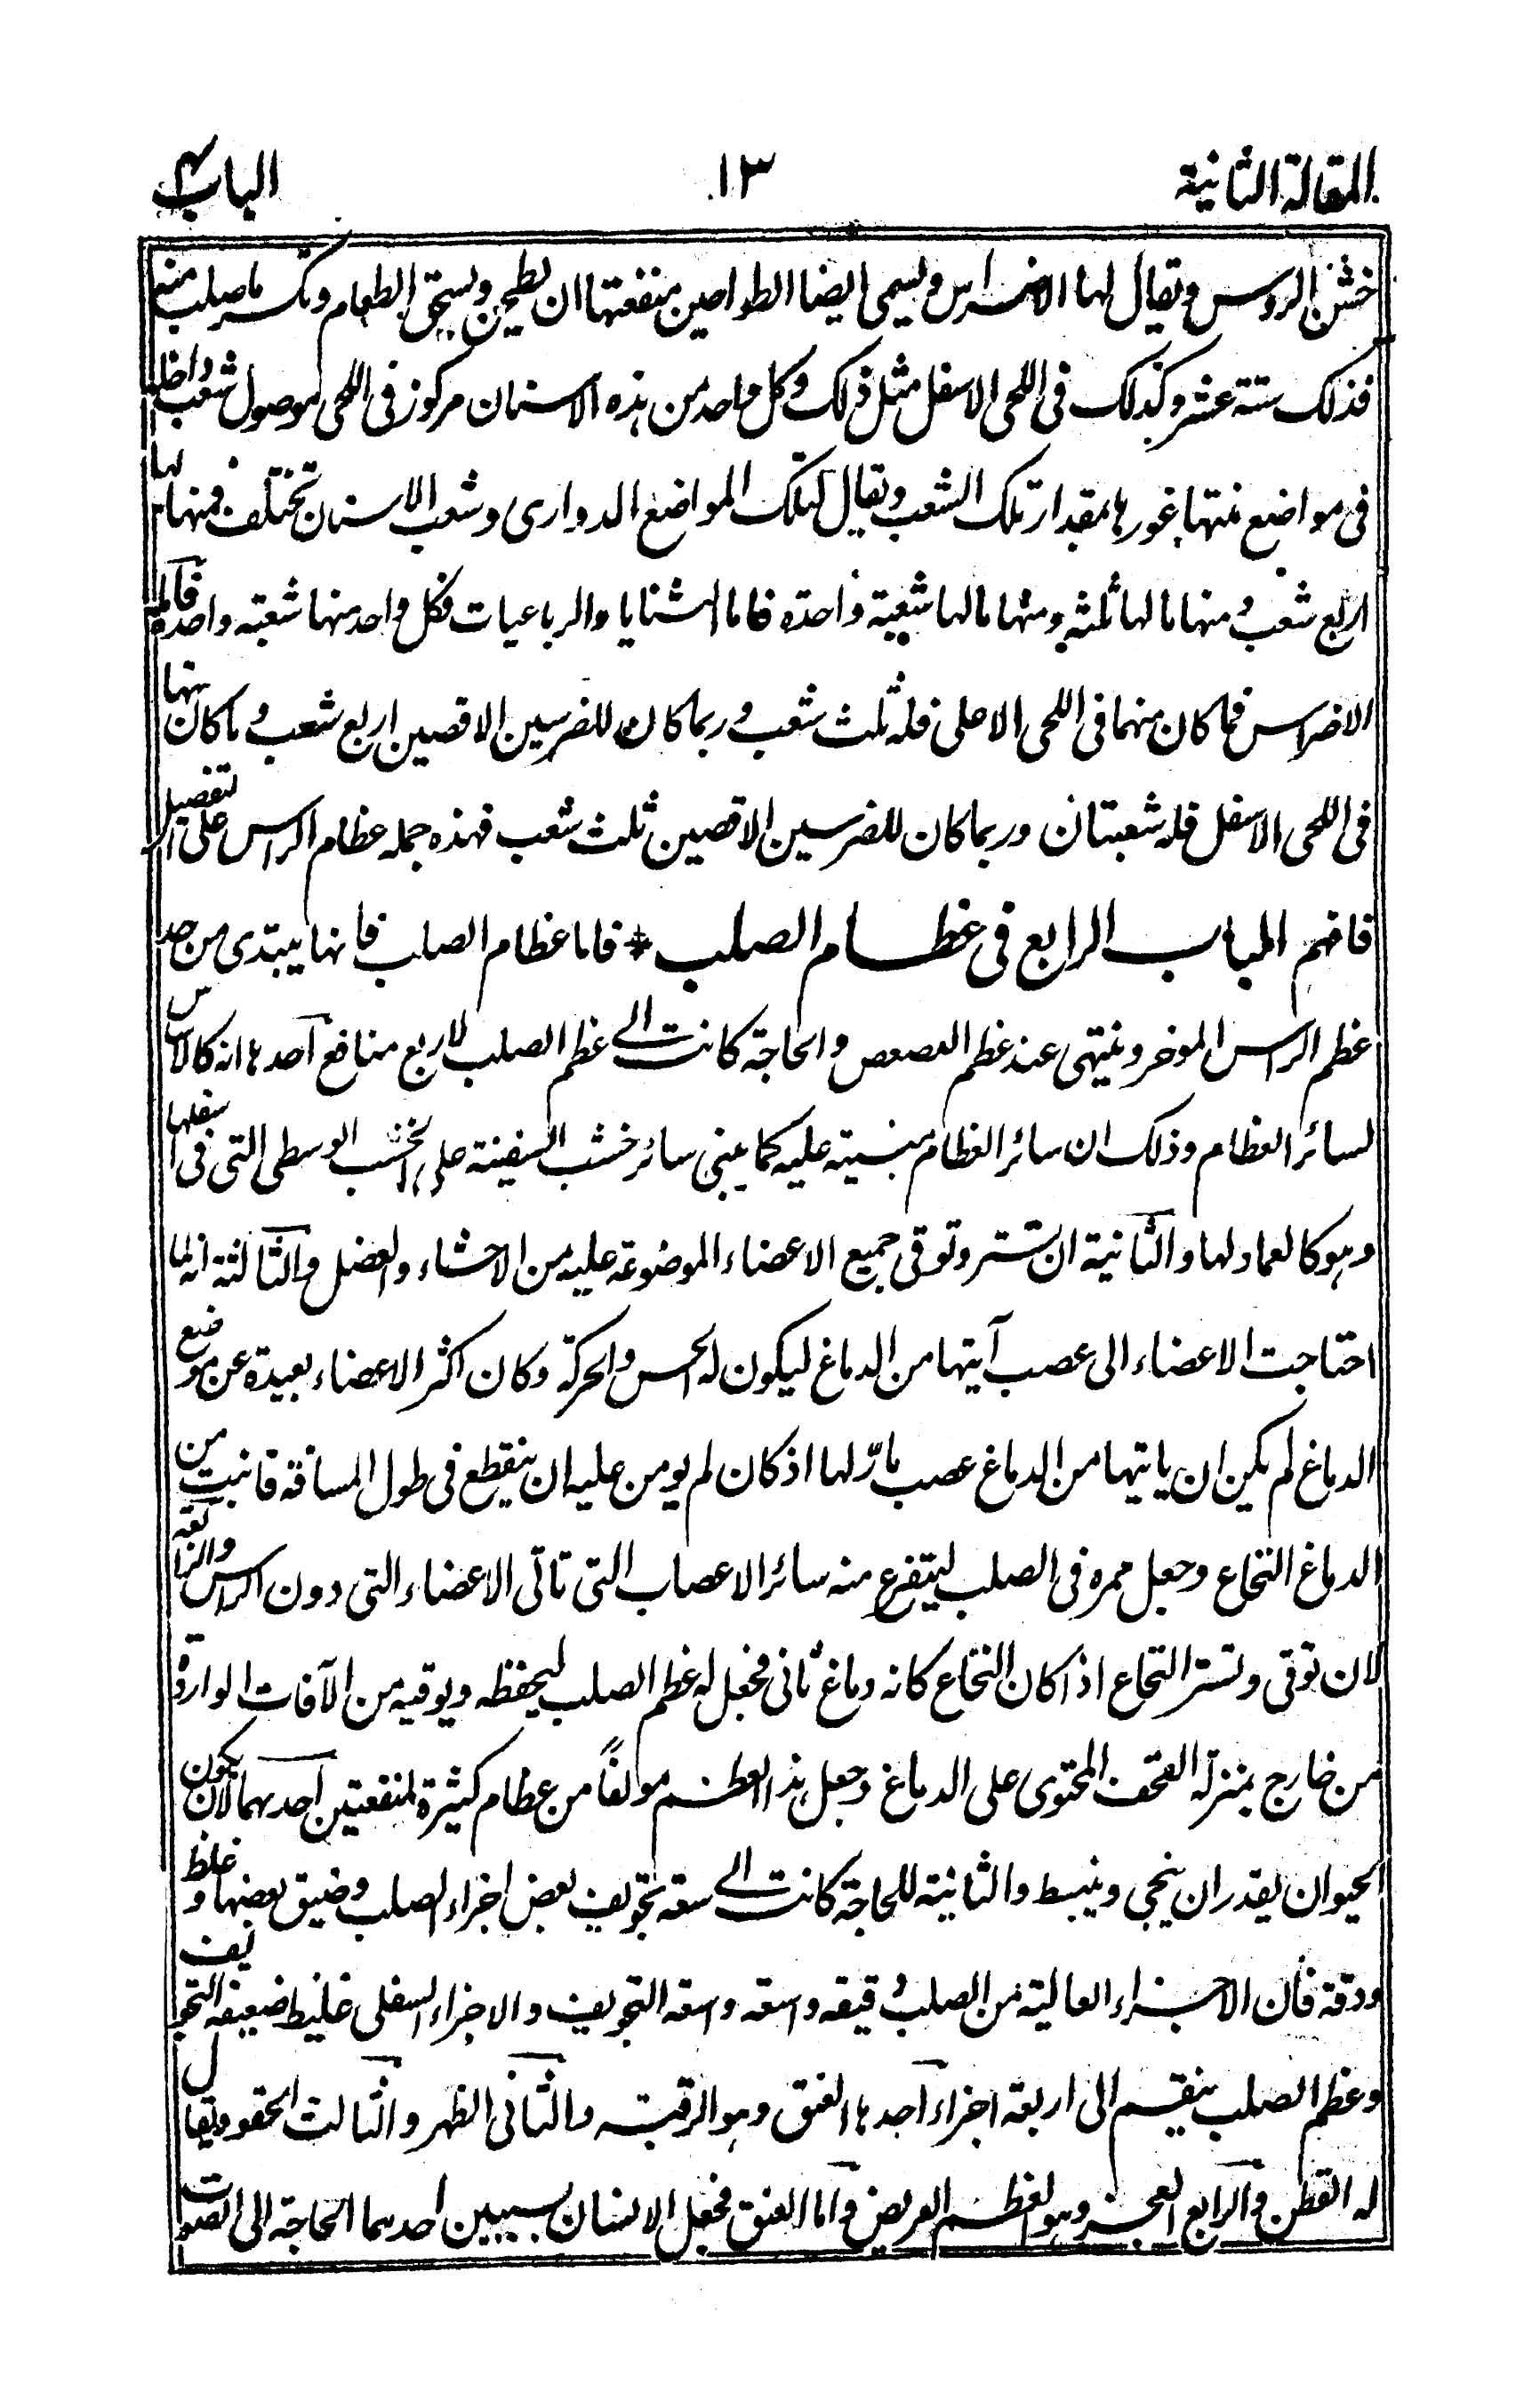 المقالة الثانية ١٣ الباب ٤
خشن الروس ويقال لها الاضراس ويسمى ايضا الطواحين منفعتها ان يطحن ويسحق الطعام ويكسر ما صلب منه
فذلك ستة عشر وكذلك فى اللحى الاسفل مثل ذلك وكل واحد من هذه الاسنان مركوز فى اللحى لموصول شعب داخلة
فى مواضع منتها غورها بمقدار تلك الشعب ويقال لتلك المواضع الدوارى وشعب الاسنان تختلف فمنها ما لها
اربع شعب ومنها ما لها ثلثه ومنها ما لها شعبة واحدة فاما الثنايا والرباعيات فكل واحد منها شعبته واحدة فاما
الاضراس فما كان منهما فى اللحى الاعلى فله ثلث شعب وربما كان للضرسين الاقصيين اربع شعب وما كان منها
فى اللحى الاسفل فله شعبتان وربما كان للضرسين الاقصيين ثلث شعب فهذه جمله عظام الراس على التفصيل
فافهم الباب الرابع فى عظام الصلب * فاما عظام الصلب فانها يبتدى من حد
عظم الراس الموخر وينتهى عند عظم العصعص والحاجة كانت الى عظم الصلب لاربع منافع احدها انه كالاساس
لسائر العظام وذلك ان سائر العظام مبنية عليه كما يبنى سائر خشب السفينة على الخشب الوسطى التى فى اسفلها
وهو كالعماد لها والثانية ان تستر وتوقى جميع الاعضاء الموضوعة عليه من الاحشاء والعضل والثالثة انه لما
احتاجت الاعضاء الى عصب آيتها من الدماغ ليكون له الحس والحركة وكان اكثر الاعضاء بعيدة عن موضع
الدماغ لم يكن ان ياتيها من الدماغ عصب مارّ لها اذ كان لم يومن عليه ان ينقطع فى طول المسافة فانبت من
الدماغ النخاع وجعل ممره فى الصلب ليتفرع منه سائر الاعصاب التى تاتى الاعضاء التى دون الراس والرابعة
لان توقى وتستر النخاع اذا كان النخاع كانه دماغ ثانى فجعل له عظم الصلب ليحفظه ويوقيه من الآفات الواردة
من خارج بمنزلة القحف المحتوى على الدماغ وجعل هذا العظم مولفاً من عظام كثيرة لمنفعتين احدهما لان يكون
الحيوان يقدر ان ينحى وينبسط والثانية للحاجة كانت الى سعة تجويف بعض اجزاء الصلب وضيق بعضها وغلظ
ودقة فان الاجزاء العالية من الصلب دقيقه واسعه واسعه التجويف والاجزاء السفلى غليظ ضيقه التجويف
وعظم الصلب ينقسم الى اربعة اجزاء احدها العنق وهو الرقبة والثانى الظهر والثالث الحقو ويقال
له القطن والرابع العجز وهو العظم العريض واما العنق فجعل الانسان بسببين احدهما الحاجة الى الصوت